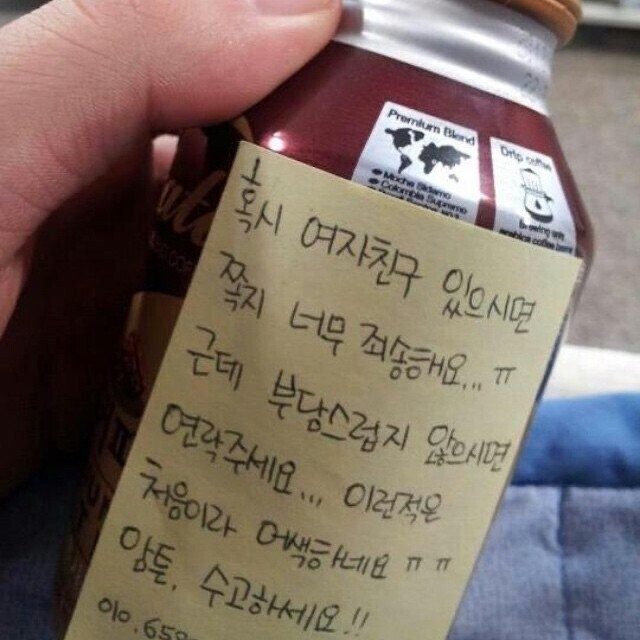 Premium Blend
Drip coffee
혹시 여자친구 있으시면
쪽지 너무 죄송해요... ㅠ
근데 부담스럽지 않으시면
연락주세요... 이런적은
처음이라 어색하네요 ㅠㅠ
암튼, 수고하세요!!
010.65